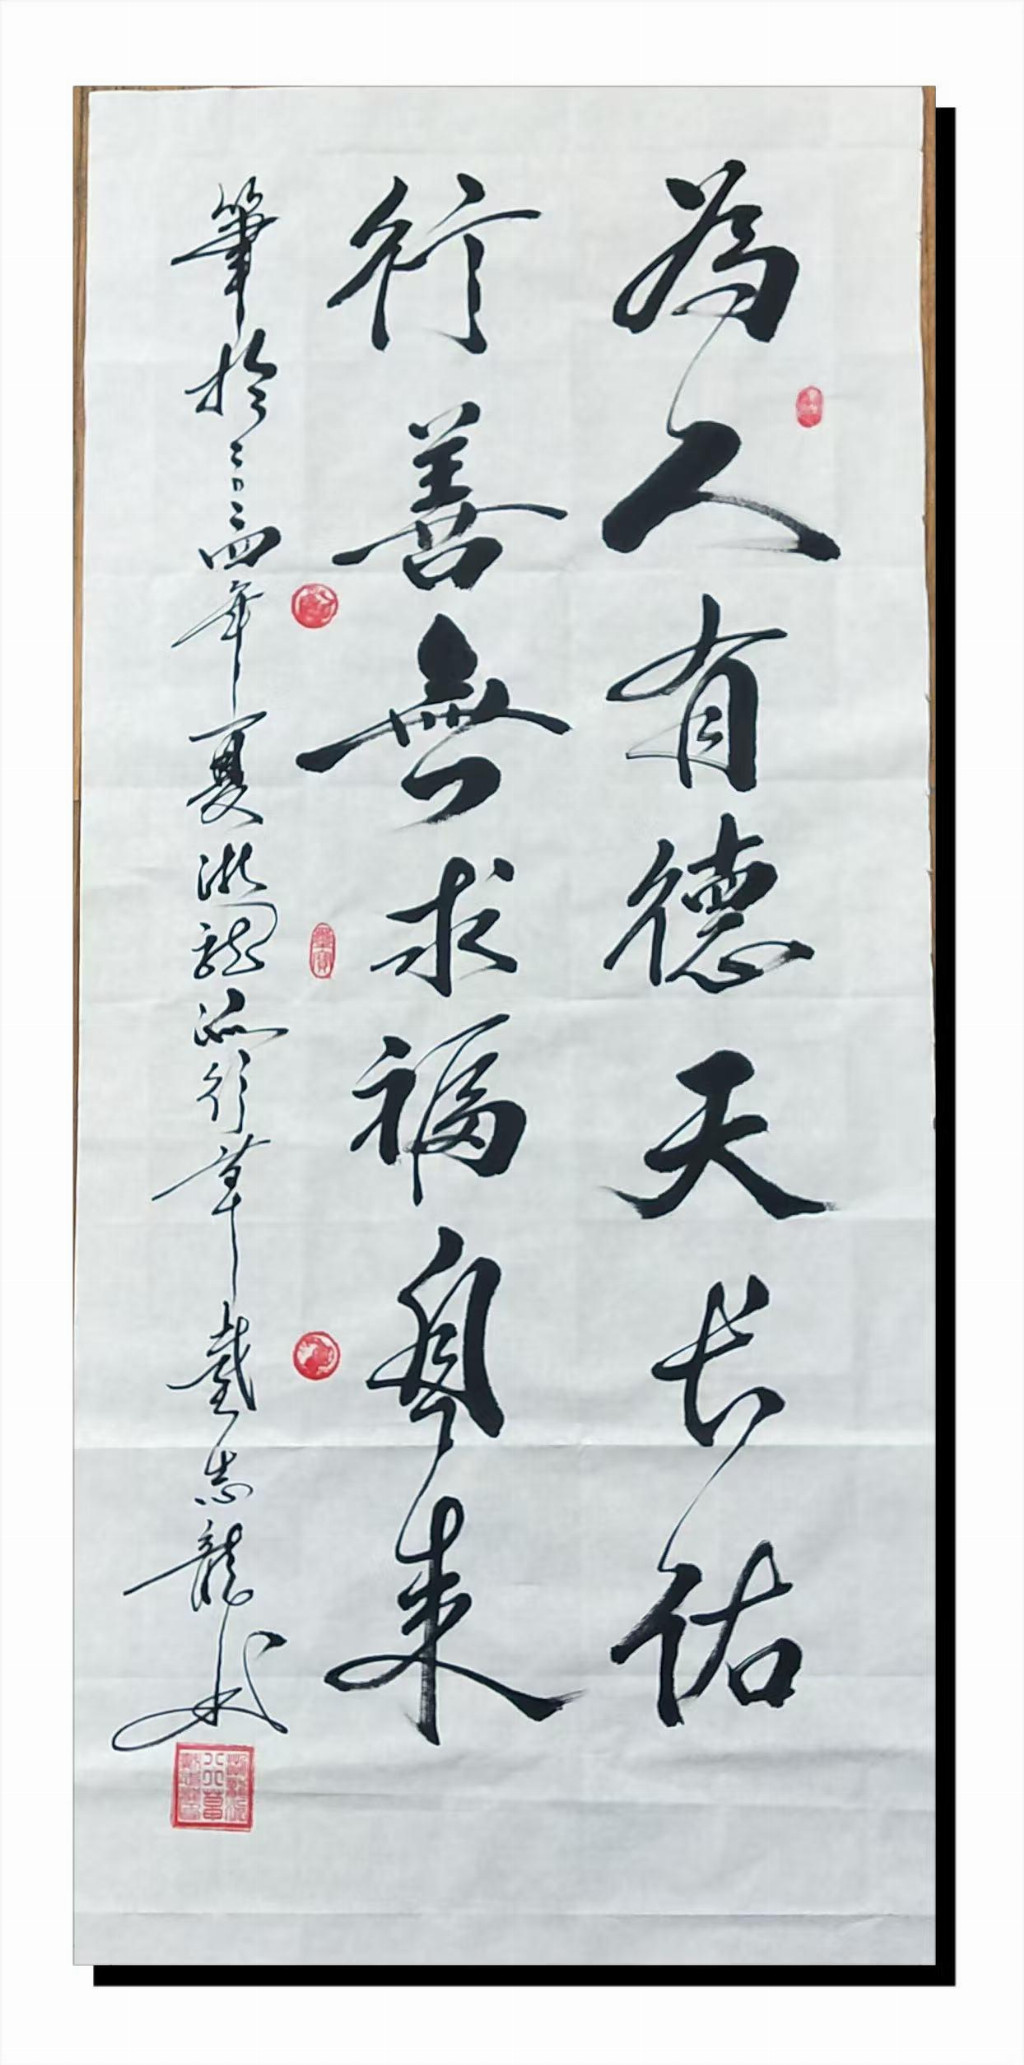 為人有德天长佑
行善無求福自来
筆於二〇二四年夏浙龍派行草戴志龍书